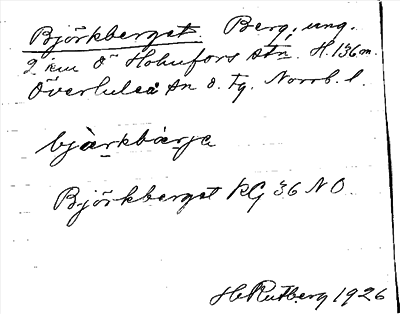 Björkberget. Berg, ung.
2 km Ö Hohufors stn. H. 136 m.
Överluleå sn o. tg. Norrb. l.
bjàrkbàrja
Björkberget KG 36 NO
H Rutberg 1926